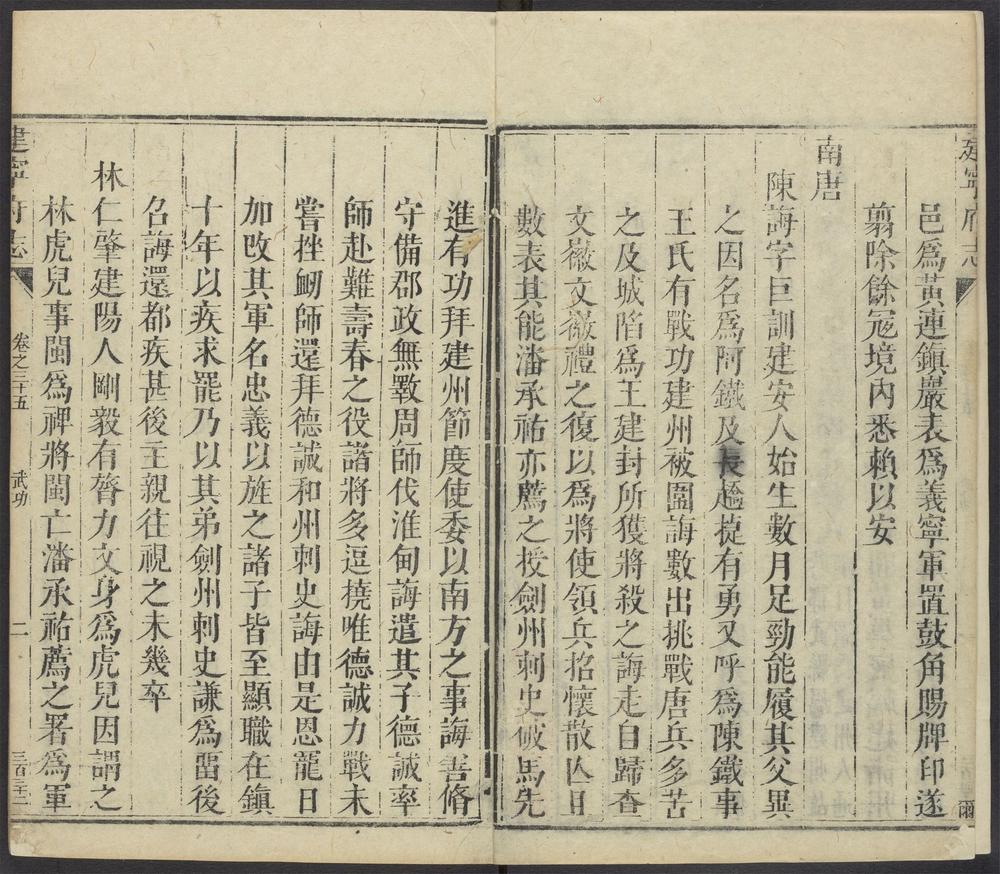 建寧府志
邑爲黃連鎭嚴表爲義寧軍置鼓角賜牌印遂
翦除餘冦境内悉賴以安
南唐
陳誨字巨訓建安人始生數月足勁能履其父異
之因名爲阿鐵及長趫捷有勇又呼爲陳鐵事
王氏有戰功建州被圍誨數出挑戰唐兵多苦
之及城陷爲王建封所獲將殺之誨走自歸查
文徽文徽禮之復以爲將使領兵招懷散亾日
數表其能潘承祐亦薦之授劍州刺史破馬先
進有功拜建州節度使委以南方之事誨善脩
守備郡政無斁周師伐淮甸誨遣其子德誠率
師赴難壽春之役諸將多逗撓唯德誠力戰未
嘗挫衂師還拜德誠和州刺史誨由是恩寵日
加改其軍名忠義以旌之諸子皆至顯職在鎭
十年以疾求罷乃以其弟劍州刺史謙爲畱後
召誨還都疾甚後主親往視之未幾卒
林仁肇建陽人剛毅有膂力文身爲虎兒因謂之
林虎兒事閩爲裨將閩亡潘承祐薦之署爲軍
建寧府志
卷之三十五
武功
二
三百三十二